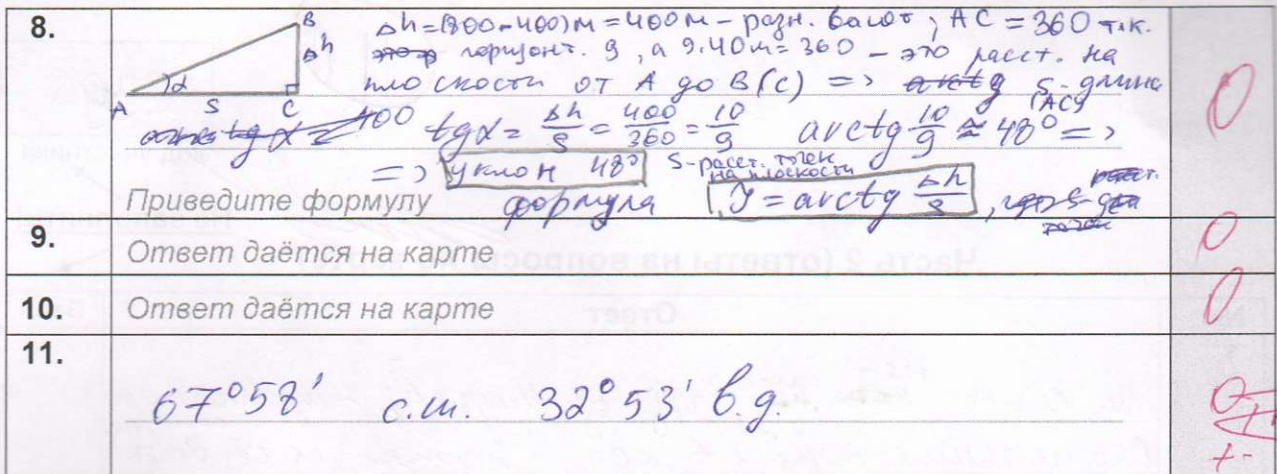 8.
B
Δh
α
A S C
Δh=(800-400)м=400м - разн. высот, AC = 360 т.к.
горизонт. 9, а 9·40м=360 - это расст. на
плоскости от A до B(C) => S-длина
(AC)
tgα = Δh/S = 400/360 = 10/9 arctg 10/9 ≈ 48° =>
=> уклон 48° S-расст. точек
на плоскости
Приведите формулу формула J = arctg Δh/S
0
9. Ответ даётся на карте
0
10. Ответ даётся на карте
0
11.
67°58' с.ш. 32°53' в.д.
Часть 2 (ответы на вопросы
Ответ